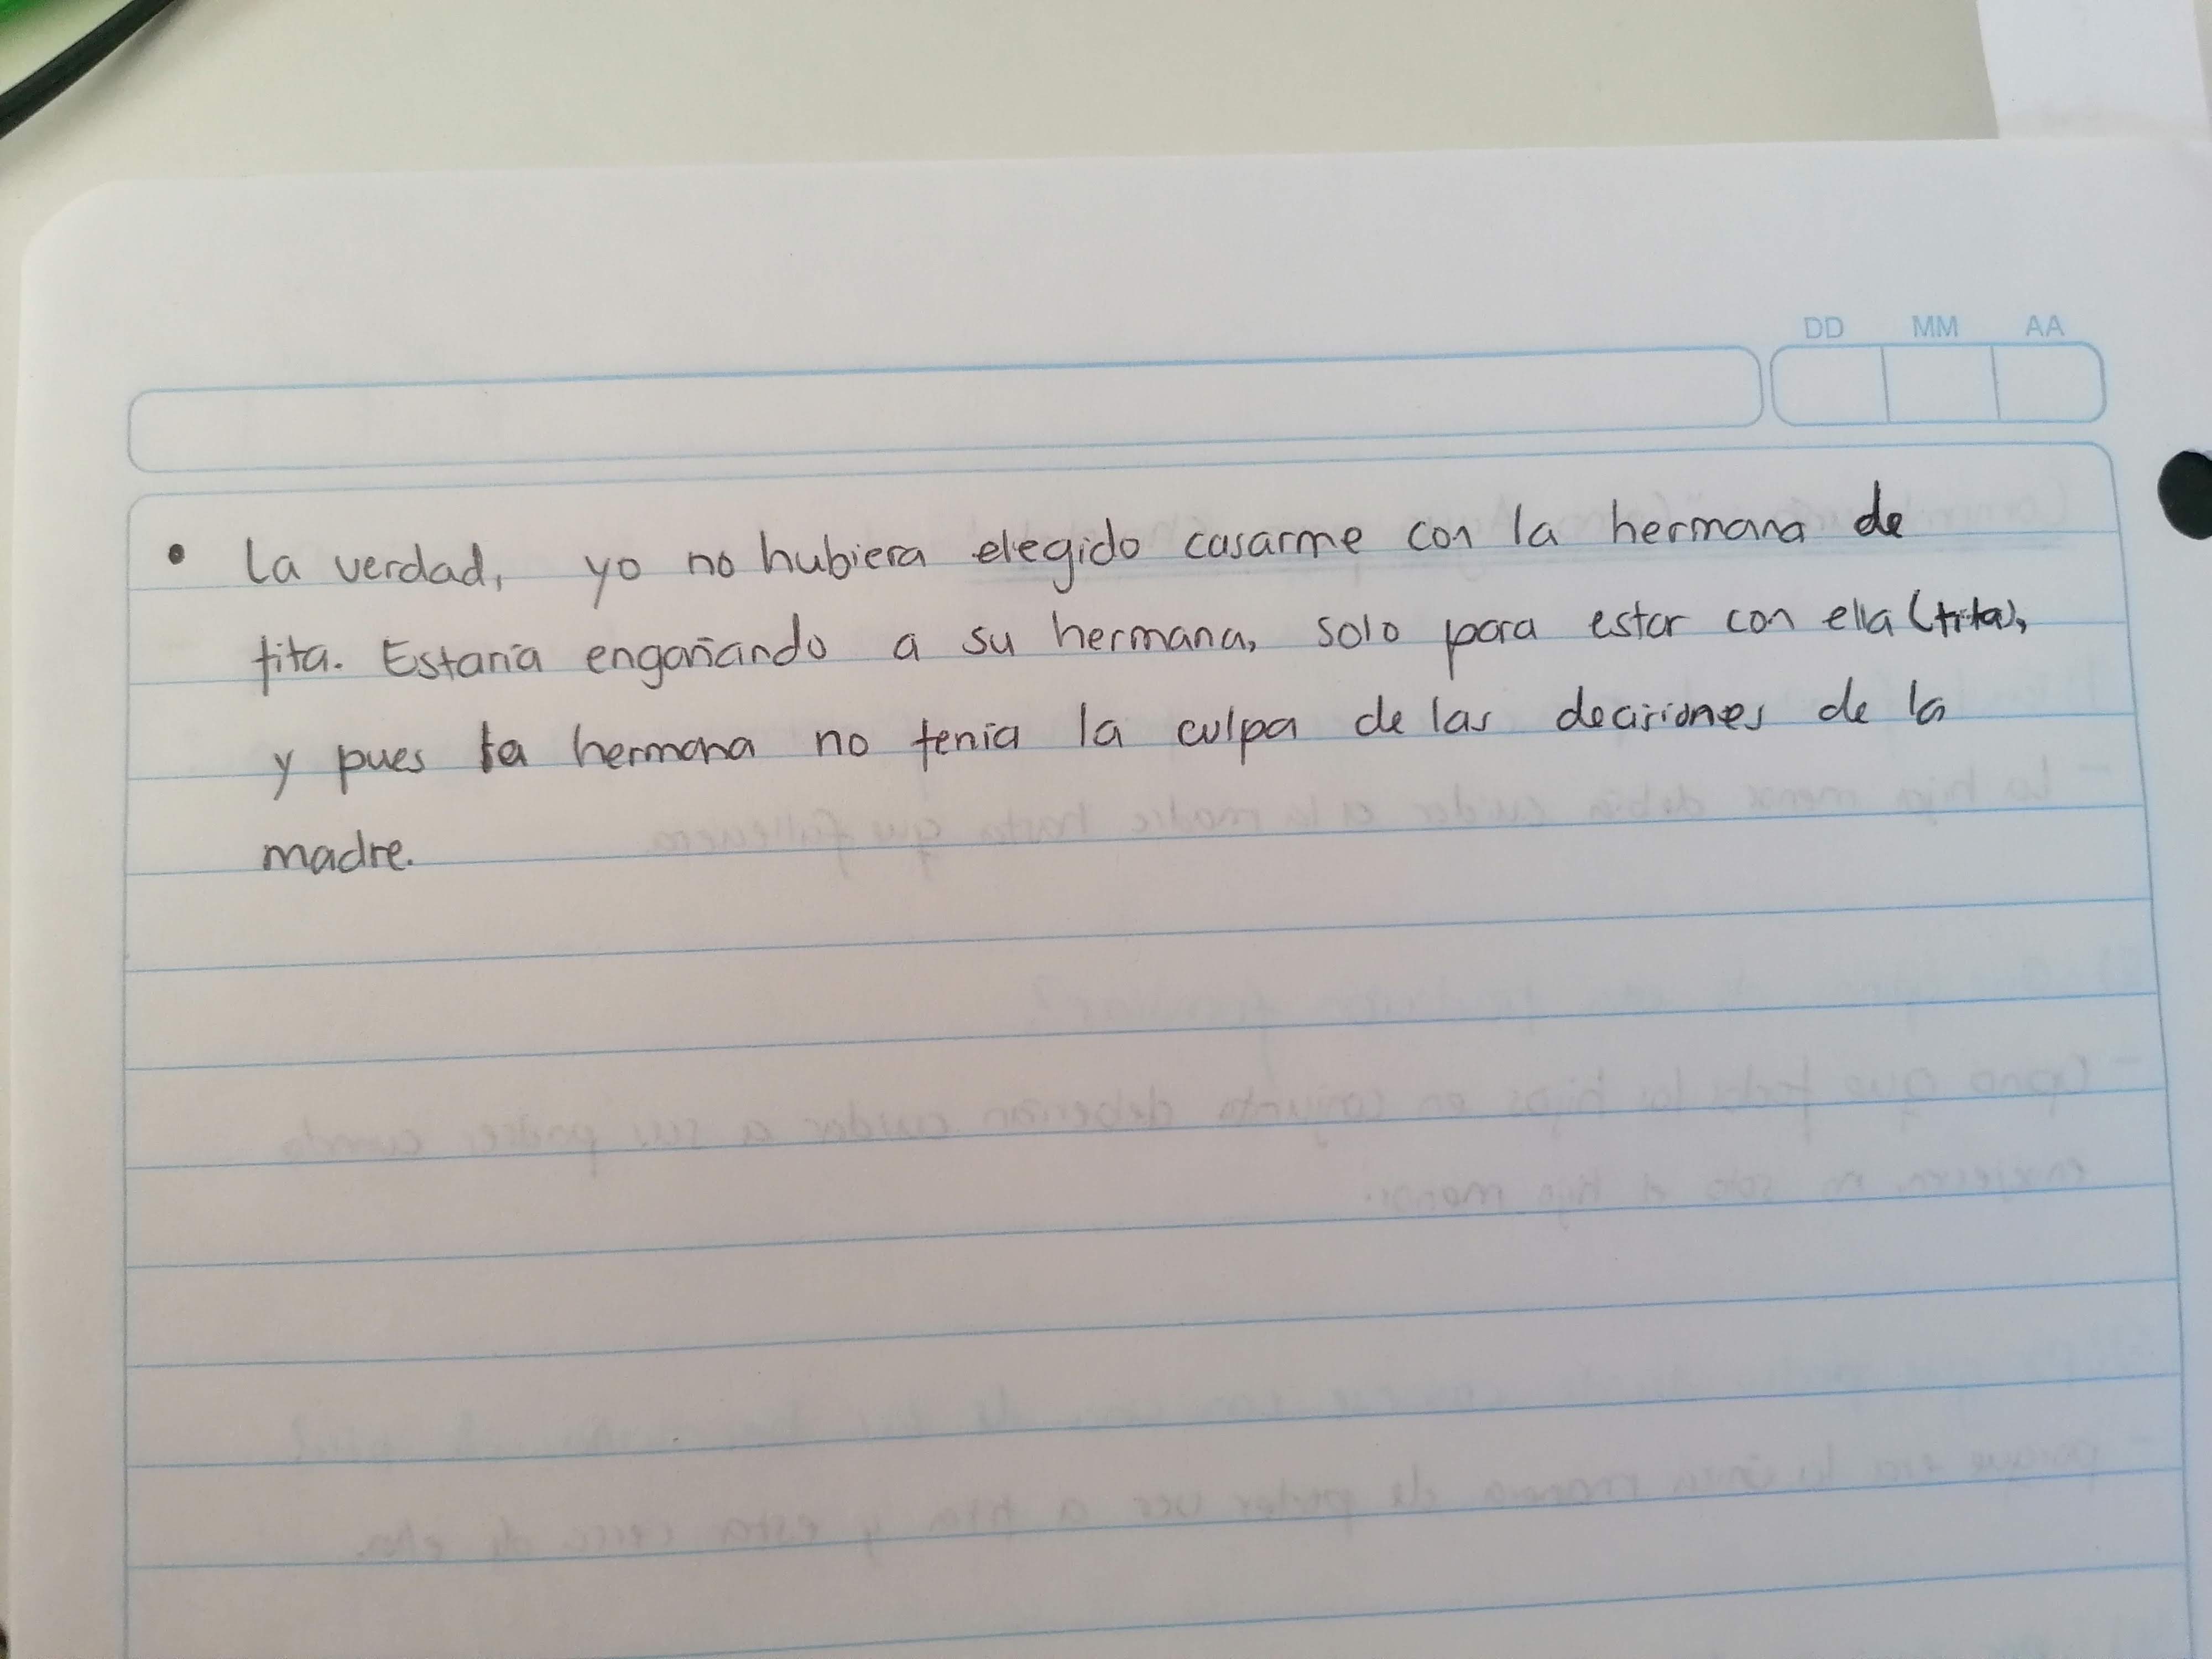 DD MM AA
• La verdad, yo no hubiera elegido casarme con la hermana de
tita. Estaría engañando a su hermana, solo para estar con ella (tita),
y pues la hermana no tenía la culpa de las decisiones de la
madre.